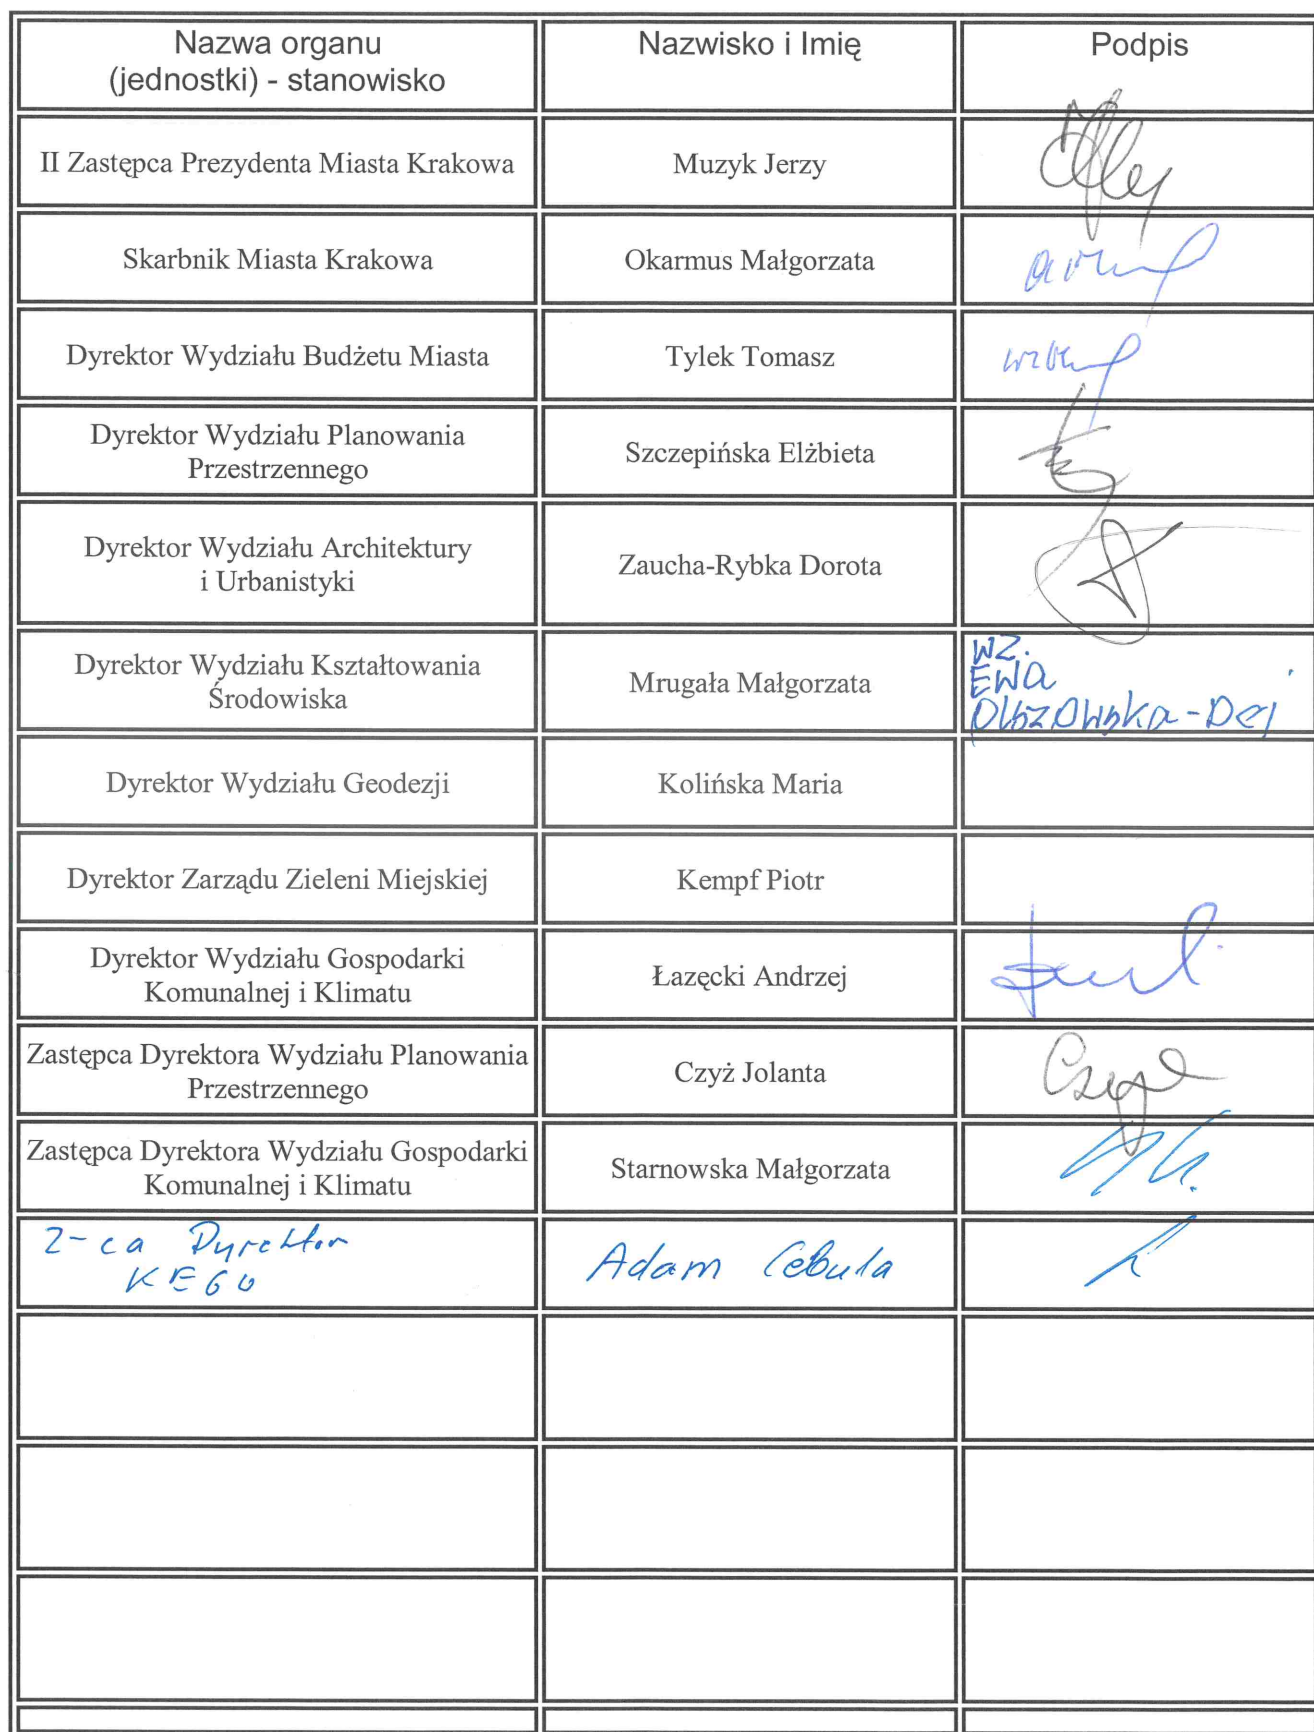 Nazwa organu
(jednostki) - stanowisko
Nazwisko i Imię
Podpis
II Zastępca Prezydenta Miasta Krakowa
Muzyk Jerzy
Skarbnik Miasta Krakowa
Okarmus Małgorzata
Dyrektor Wydziału Budżetu Miasta
Tylek Tomasz
Dyrektor Wydziału Planowania
Przestrzennego
Szczepińska Elżbieta
Dyrektor Wydziału Architektury
i Urbanistyki
Zaucha-Rybka Dorota
Dyrektor Wydziału Kształtowania
Środowiska
Mrugała Małgorzata
WZ.
EWA
OLSZOWSKA-DEJ
Dyrektor Wydziału Geodezji
Kolińska Maria
Dyrektor Zarządu Zieleni Miejskiej
Kempf Piotr
Dyrektor Wydziału Gospodarki
Komunalnej i Klimatu
Łazęcki Andrzej
Zastępca Dyrektora Wydziału Planowania
Przestrzennego
Czyż Jolanta
Zastępca Dyrektora Wydziału Gospodarki
Komunalnej i Klimatu
Starnowska Małgorzata
Z-ca Dyrektor
Adam Cebula